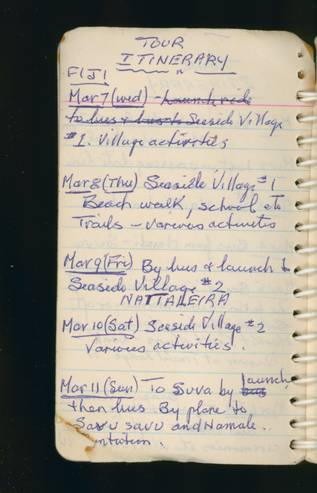 TOUR
ITINERARY
FIJI
Mar 7 (wed) - Launch ride
to bus & bus to Seaside Village
#1. Village activities
Mar 8 (Thu) Seaside Village #1
Beach walk, school etc
Trails - various activities
Mar 9 (Fri) By bus & launch to
Seaside Village #2
NATTALEIRA
Mar 10 (Sat) Seaside Village #2
Various activities.
Mar 11 (Sun) To Suva by launch
then bus. By plane to
Savu savu and Namale
ntation.